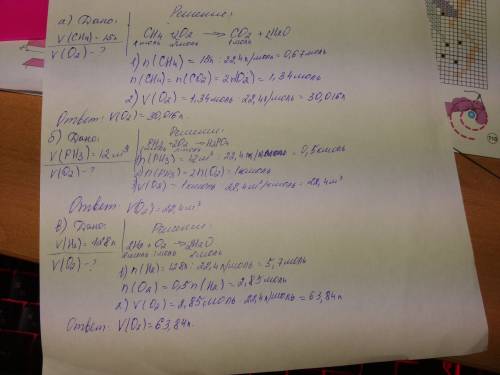 а) Дано: Решение:
V(CH4) = 15л
V(O2) - ?
CH4 + 2O2 → CO2 + 2H2O
1моль 2моль 1моль
1) n(CH4) = 15л : 22,4л/моль = 0,67моль
n(CH4) = n(CO2) = 2n(O2) = 1,34моль
2) V(O2) = 1,34моль · 22,4л/моль = 30,016л
Ответ: V(O2) = 30,016л
б) Дано: Решение:
V(PH3) = 12м³
V(O2) - ?
PH3 + 2O2 → H3PO4
n(PH3) = 12м³ : 22,4м³/кмоль = 0,5кмоль
n(PH3) = 2n(O2) = 1кмоль
V(O2) - 1кмоль · 22,4м³/кмоль = 22,4м³
Ответ: V(O2) = 22,4м³
в) Дано: Решение:
V(H2) = 128л
V(O2) - ?
2H2 + O2 → 2H2O
2моль 1моль 2моль
1) n(H2) = 128л : 22,4л/моль = 5,7моль
n(O2) = 0,5n(H2) = 2,85моль
2) V(O2) = 2,85моль · 22,4л/моль = 63,84л
Ответ: V(O2) = 63,84л.